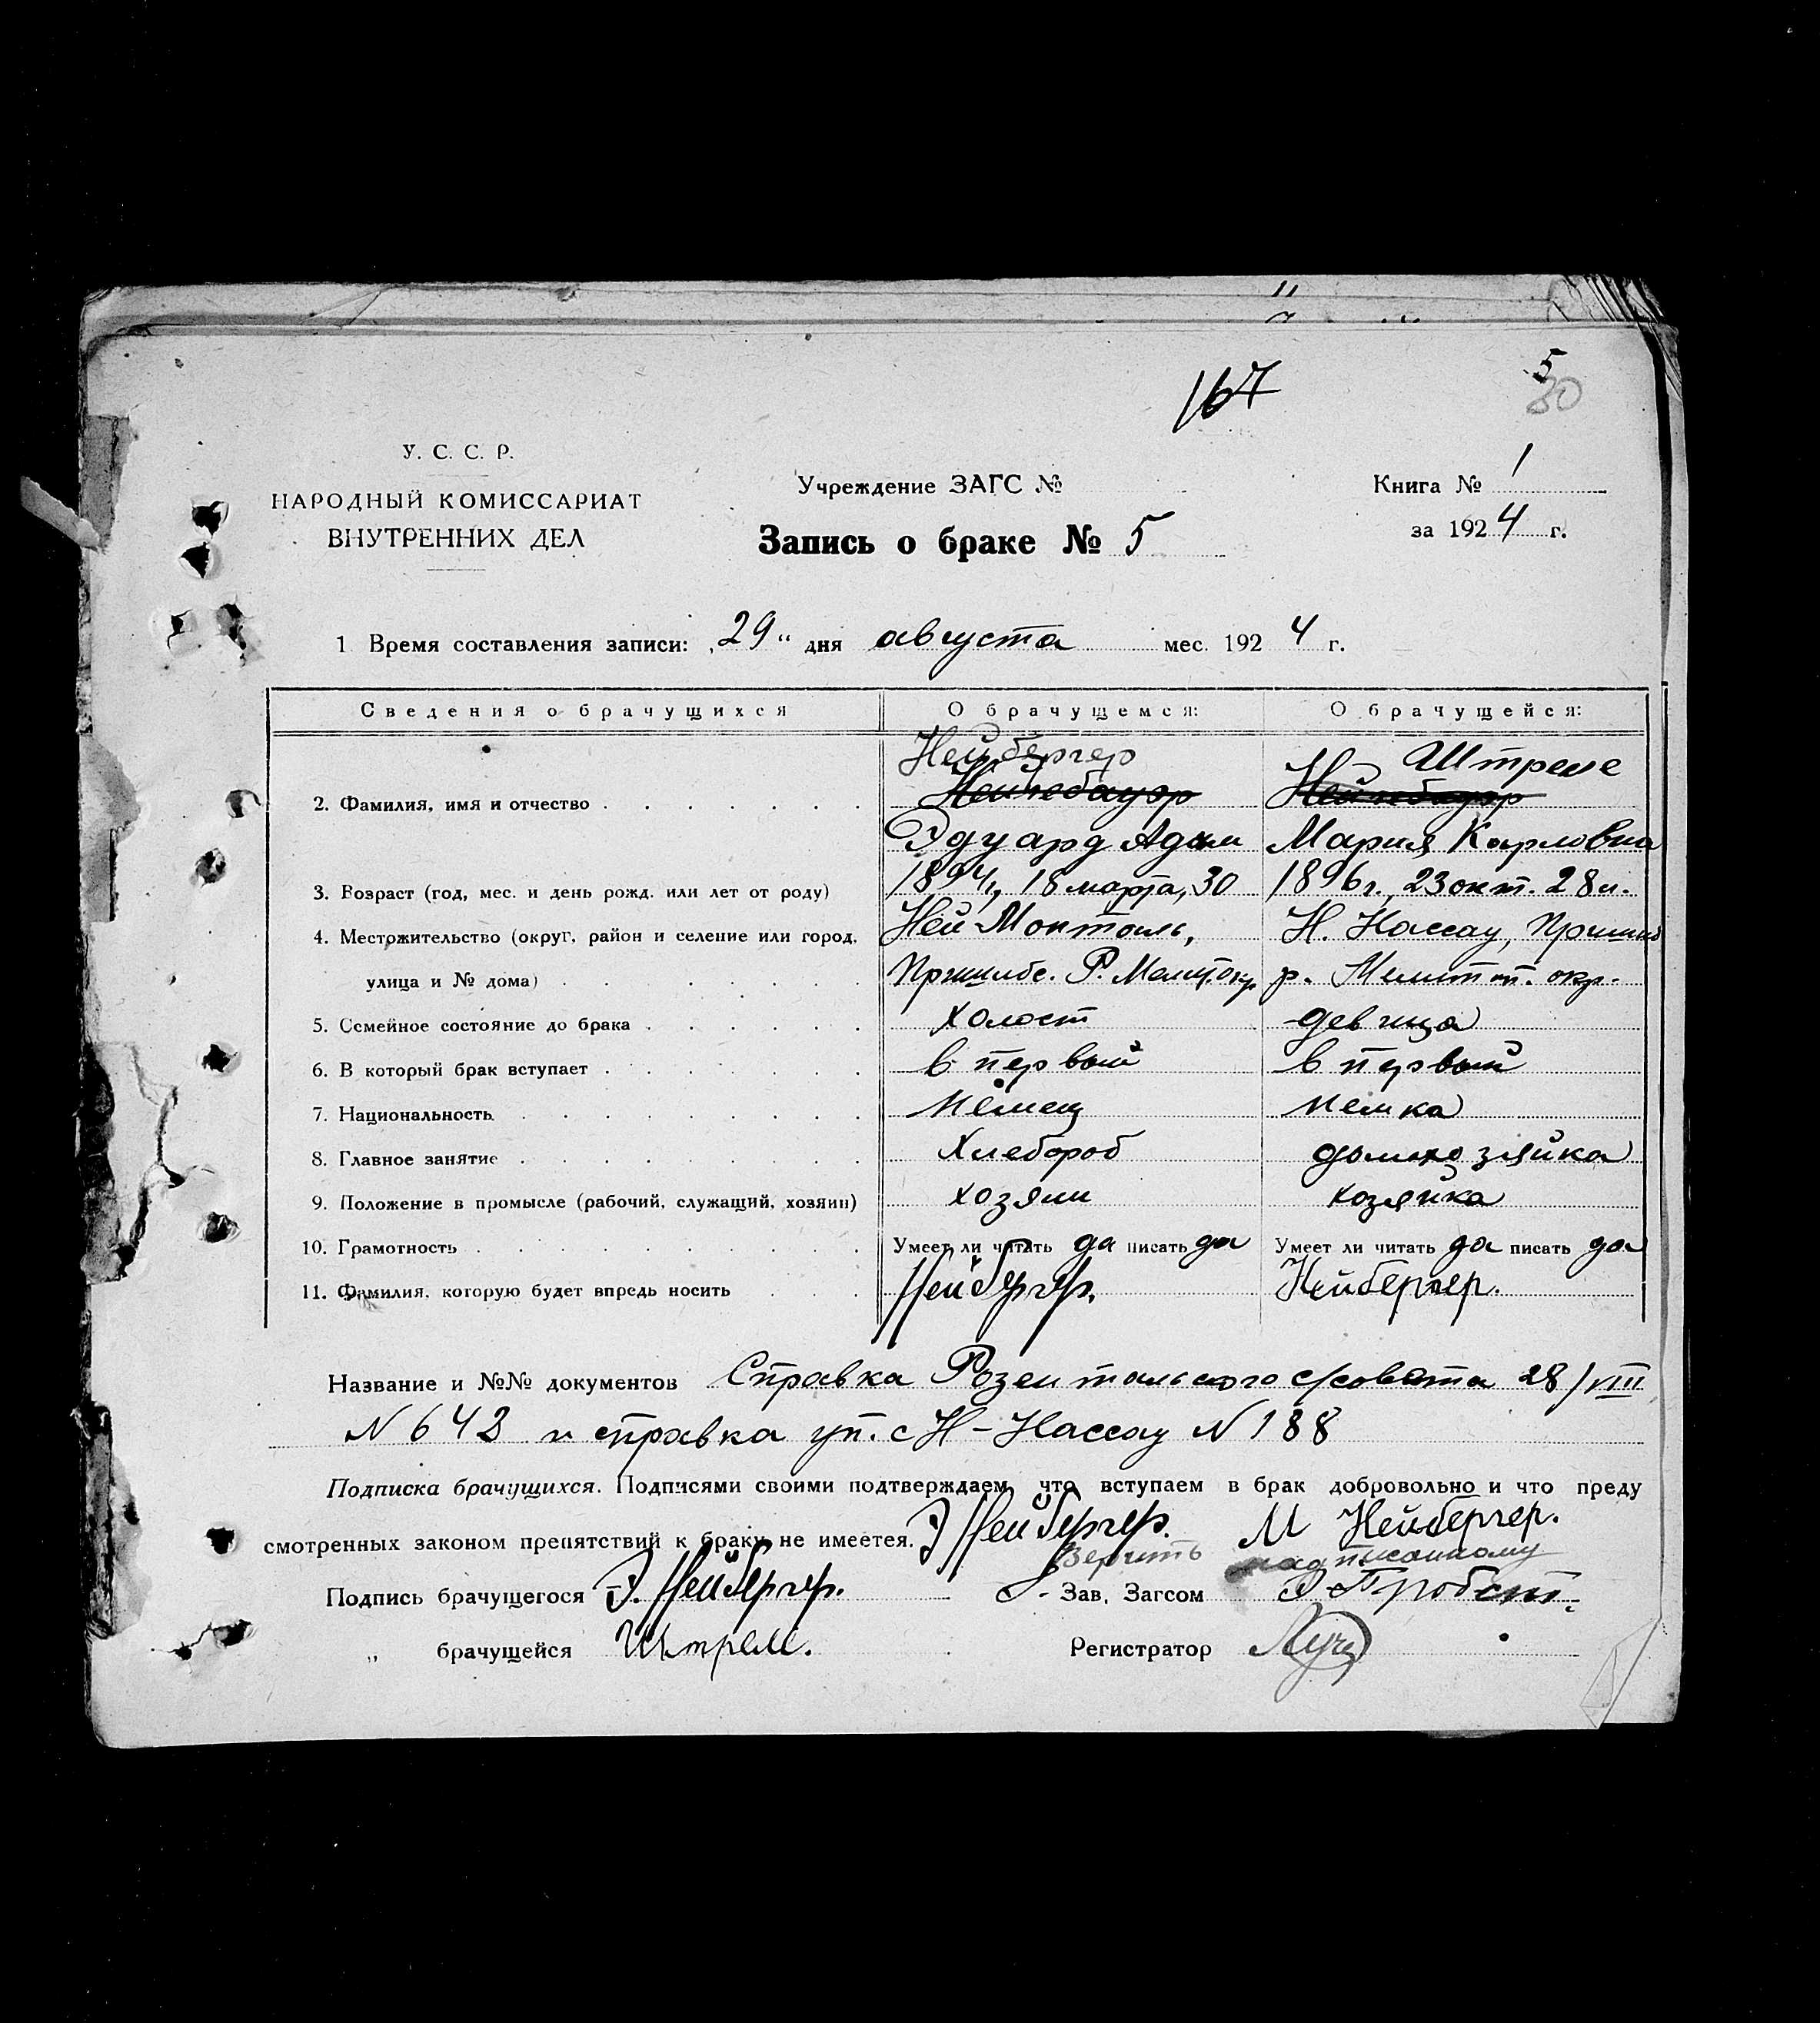 5
167
30
У. С. С. Р.
НАРОДНЫЙ КОМИССАРИАТ
ВНУТРЕННИХ ДЕЛ
Учреждение ЗАГС №
Запись о браке № 5
Книга № 1
за 1924 г.
1 Время составления записи: „29" дня августа мес. 1924 г.
Сведения о брачущихся О брачущемся: О брачущейся:
Нейбергер Штреле
2. Фамилия, имя и отчество
Эдуард Адам Мария Карловна
3. Возраст (год, мес. и день рожд. или лет от роду) 1894г, 18 марта, 30 1896г., 23 окт. 28 л.
4. Местожительство (округ, район и селение или город, Ней Монталь, Н. Нассау, Пришиб
улица и № дома) Пришибс. Р. Мелит.окр р. Мелитоп. окр.
5. Семейное состояние до брака холост девица
6. В который брак вступает в первый в первый
7. Национальность немец немка
8. Главное занятие хлебороб домохозяйка
9. Положение в промысле (рабочий, служащий, хозяин) хозяин хозяйка
10. Грамотность Умеет ли читать да писать да Умеет ли читать да писать да
11. Фамилия, которую будет впредь носить Нейбергер. Нейбергер.
Название и №№ документов Справка Розентальского с/совета 28/VIII
N 642 и справка уп. с Н-Нассау N 188
Подписка брачущихся. Подписями своими подтверждаем, что вступаем в брак добровольно и что преду
смотренных законом препятствий к браку не имеется. Э Нейбергер. М Нейбергер.
Верить надписанному
Подпись брачущегося Э. Нейбергер. Зав. Загсом Э Пробст.
„ брачущейся Штреле. Регистратор